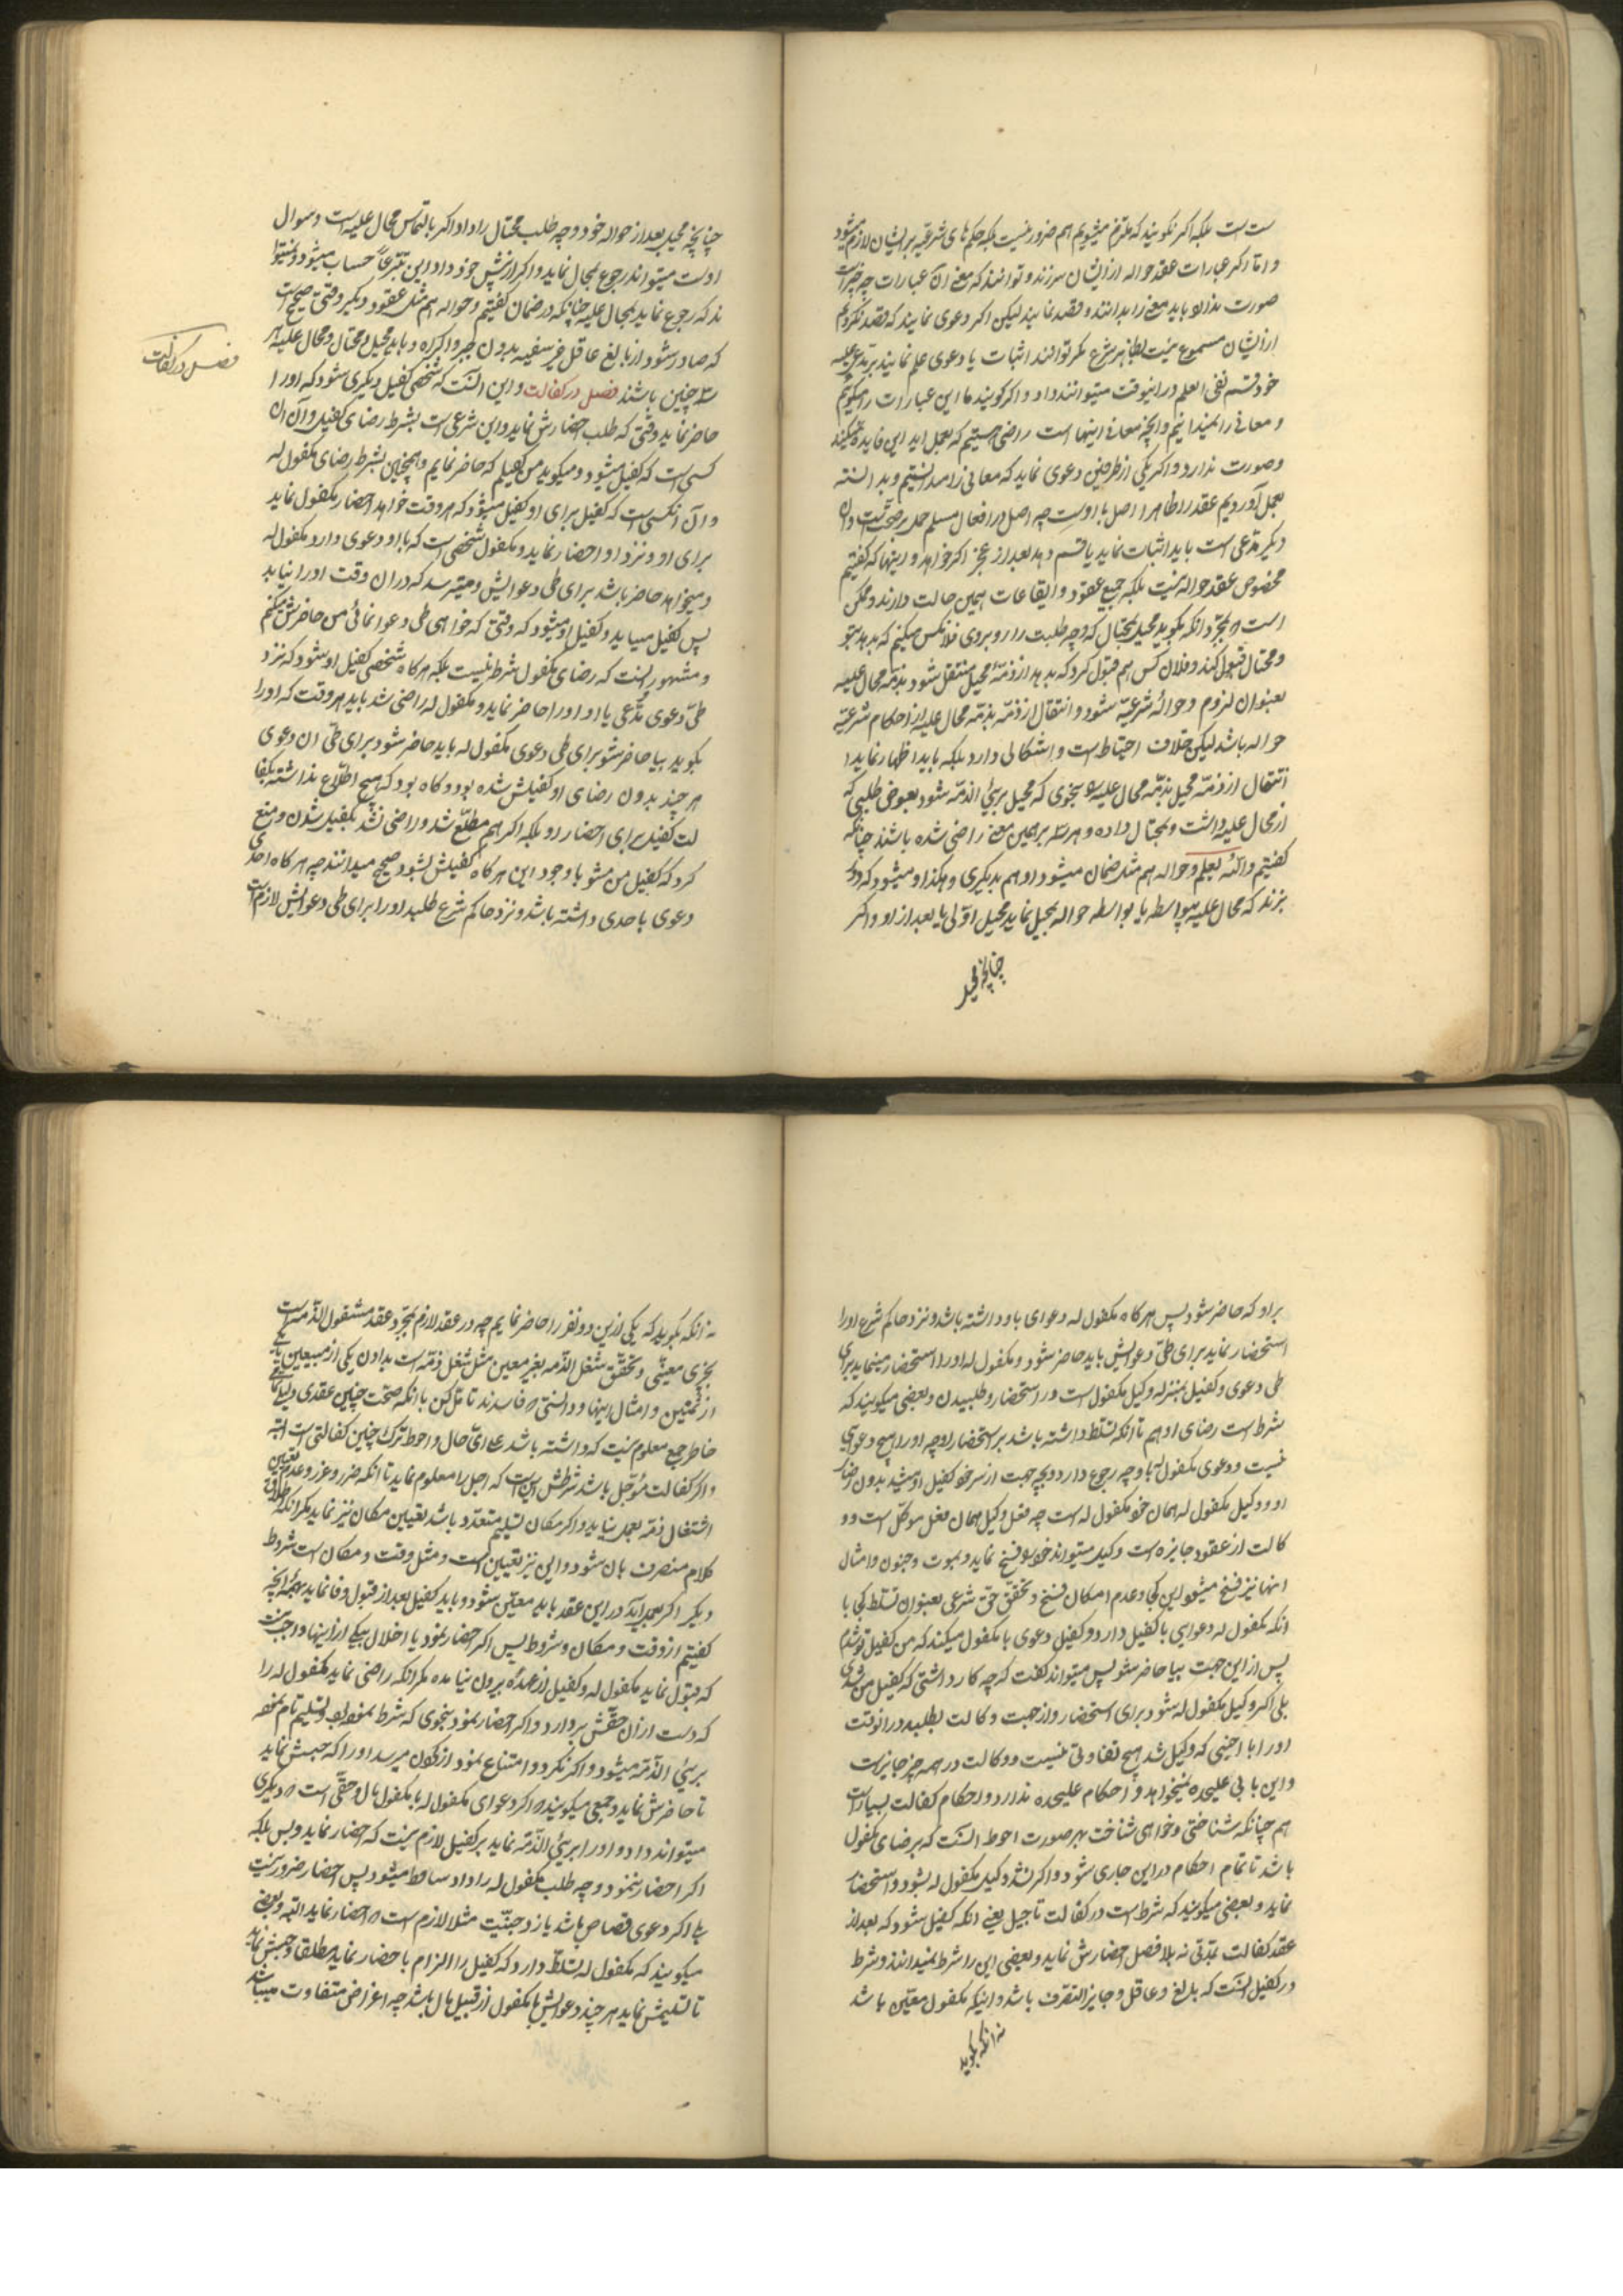 ست است بلکه اکر نکویند که ملتزم میشویم هم ضرور نیست بلکه حکم های شرعیه بر ایشان لازم میشود
و اما اکر عبارات عقد حواله از ایشان سر زند و توانند که معنی آن عبارات چه چیز است
صورت ندارد باید معنی را بدانند و قصد نمایند لیکن اکر دعوی نمایند که قصد نکردیم
از ایشان مسموع نیست بظاهر شرع مکر توانند اثبات یا دعوی علم نمایند بر مدعی علیه
خود قسم نفی العلم در اینوقت میتوانند داد و اکر کویند ما این عبارات را میکوئیم
و معانی را نمیدانیم و آنچه معانی اینها است راضی هستیم که بعمل اید این فایده نمیکند
وصورت ندارد و اکر یکی از طرفین دعوی نماید که معانی را میدانستیم و بدانسته
بعمل آوردیم عقد را ظاهرا اصل با اوست چه اصل در افعال مسلم حمل بر صحت است و آن
دیکر مدعی است باید اثبات نماید یا قسم دهد بعد از عجز اکر خواهد و اینها که کفتیم
مخصوص عقد حواله نیست بلکه جمیع عقود و ایقاعات همین حالت دارند و ممکن
است که بمجرد انکه بکوید محیل بمحتال که وجه طلبت را روبروی فلانکس میکنم که بدهد بتو
و محتال قبول کند و فلان کس هم قبول کرد که بدهد از ذمه محیل منتقل شود بذمه محال علیه
بعنوان لزوم و حواله شرعیه شود و انتقال از ذمه بذمه محال علیه از احکام شرعیه
حواله باشد لیکن خلاف احتیاط است و اشکالی دارد بلکه باید اظهار نماید ا
نتقال از ذمه محیل بذمه محال علیه بنحوی که محیل بریئ الذمه شود بعوض طلبی که
از محال علیه داشت و بمحتال داده و هر سه بر همین معنی راضی شده باشند چنانکه
کفتیم والله یعلم و حواله هم مثل ضمان میشود او هم بدیکری و هکذا و میشود که دور
بزند که محال علیه بیواسطه یا بواسطه حواله بمحیل نماید محیل اولی یا بعد از او و اکر
چنانچه محیل
چنانچه محیل بعد از حواله خود وجه طلب محتال را داد اکر بالتماس محال علیه است و سوال
اوست میتواند رجوع بمحال نماید و اکر از پیش خود داد این تبرعاً حساب میشود و نمیتوا
ند که رجوع نماید بمحال علیه چنانکه در ضمان کفتیم و حواله هم مثل عقود دیکر وقتی صحیح است
که صادر شود از بالغ عاقل غیر سفیه بدون جبر و اکراه و باید محیل و محتال و محال علیه هر
سه چنین باشند فصل در کفالت و این انست که شخصی کفیل دیکری شود که او را
فصل در کفالت
حاضر نماید وقتی که طلب احضارش نماید و این شرعی است بشرط رضای کفیل و آن ان
کسی است که کفیل میشود و میکوید من کفیلم که حاضر نمایم و همچنین بشرط رضای مکفول له
و آن انکسی است که کفیل برای او کفیل میشود که هر وقت خواهد احضار مکفول نماید
برای او و نزد او احضار نماید و مکفول شخصی است که با او دعوی دارد مکفول له
و میخواهد حاضر باشد برای طی دعوایش و میترسد که در ان وقت او را نیابد
پس کفیل میاید و کفیل او میشود که وقتی که خواهی طی دعوا نمائی من حاضرش میکنم
و مشهور انست که رضای مکفول شرط نیست بلکه هرکاه شخصی کفیل او شود که نزد
طی دعوی مدعی با او او را حاضر نماید و مکفول له راضی شد باید هر وقت که او را
بکوید بیا حاضر شو برای طی دعوی مکفول له باید حاضر شود برای طی ان دعوی
هر چند بدون رضای او کفیلش شده بود و کاه بود که هیچ اطلاع نداشته بکفا
لت کفیل برای احضار او بلکه اکر هم مطلع شد و راضی نشد بکفیل شدن و منع
کرد که کفیل من مشو با وجود این هرکاه کفیلش بشود صحیح میدانند چه هرکاه احدی
دعوی با احدی داشته باشد و نزد حاکم شرع طلبد او را برای طی دعوایش لازم است
براو که حاضر شود پس هرکاه مکفول له دعوای باو داشته باشد و نزد حاکم شرع او را
استحضار نماید برای طی دعوایش باید حاضر شود و مکفول له او را استحضار مینماید برای
طی دعوی و کفیل بمنزله وکیل مکفول است در استحضار و طلبیدن و بعضی میکویند که
شرط است رضای او هم تا انکه تسلط داشته باشد بر استحضار او چه او را هیچ دعوایی
نیست و دعوی مکفول له باو چه رجوع دارد و بچه جهت از سر خود کفیل او میشد بدون رضای
او و وکیل مکفول له همان خود مکفول له است چه فعل وکیل همان فعل موکل است و و
کالت از عقود جایزه است وکیل میتواند خود را فسخ نماید و بموت و جنون و امثال
انها نیز فسخ میشود این کجا و عدم امکان فسخ و تحقق حق شرعی بعنوان تسلط کجا با
انکه مکفول له دعوایی با کفیل دارد و کفیل دعوی با مکفول میکند که من کفیل تو شدم
پس از این جهت بیا حاضر شو پس میتواند کفت که چه کار داشتی که کفیل من شدی
بلی اکر وکیل مکفول له شود برای استحضار و از جهت وکالت بطلبد در انوقت
او را با اجنبی که وکیل شد هیچ تفاوتی نیست و وکالت در همه چیز جایز است
و این بابی علیحده نمیخواهد و احکام علیحده ندارد و احکام کفالت بسیار است
هم چنانکه شناختی و خواهی شناخت بهر صورت احوط انست که برضای مکفول
باشد تا تمام احکام در این جاری شود و اکر نشد وکیل مکفول له بشود و استحضار
نماید و بعضی میکویند که شرط است در کفالت تاجیل یعنی انکه کفیل شود که بعد از
عقد کفالت بمدتی نه بلا فصل احضارش نماید و بعضی این را شرط نمیدانند و شرط
در کفیل انست که بالغ و عاقل و جایز التصرف باشد و اینکه مکفول معین باشد
نه انکه بکوید
نه انکه بکوید که یکی از این دو نفر را حاضر نمایم چه در عقد لازم بمجرد عقد مشغول الذمه است
بچیزی معینی و تحقق شغل الذمه بغیر معین مثل شغل ذمه است بدادن یکی از مبیعین یا یکی
از ثمنین و امثال اینها و دانستی که فاسدند تامل کن با انکه صحت چنین عقدی
خاطر جمع معلوم نیست که داشته باشد علی ای حال و احوط ترک چنین کفالتی است البته
و اکر کفالت مؤجل باشد شرطش این است که اجل را معلوم نماید تا انکه ضرر و غرر و عدم تعیین
اشتغال ذمه بعمل نیاید و اکر مکان تسلیم متعدد باشد تعیین مکان نیز نماید مکر انکه اطلاق
کلام منصرف بان شود و این نیز تعیین است و مثل وقت و مکان است شروط
دیکر اکر بعمل اید در این عقد باید معین شود و باید کفیل بعد از قبول وفا نماید بهمه آنچه
کفتیم از وقت و مکان و شروط پس اکر احضار نمود با اخلال بیکی از اینها واجب نیست
که قبول نماید مکفول له و کفیل از عهده برون نیامده مکر انکه راضی نماید مکفول له را
که دست از ان حقش بردارد و اکر احضار نمود بنحوی که شرط نموده بود و تسلیم تام نموده
بریئ الذمه میشود و اکر نکرد و امتناع نمود از کفول میرسد او را که حبسش نماید
تا حاضرش نماید و جمعی میکویند که اکر دعوای مکفول له با مکفول مال و حقی است که دیکری
میتواند داد و او را بریئ الذمه نماید بر کفیل لازم نیست که احضار نماید و بس بلکه
اکر احضار ننمود و وجه طلب مکفول له را داد ساقط میشود پس احضار ضرور نیست
بلی اکر دعوی قصاص باشد یا زوجیت مثلا لازم است که احضار نماید البته و بعضی
میکویند که مکفول له تسلط دارد که کفیل را الزام باحضار نماید مطلقا و حبسش نماید
تا تسلیمش نماید هر چند دعوایش با مکفول از قبیل مال باشد چه اغراض متفاوت میباشد